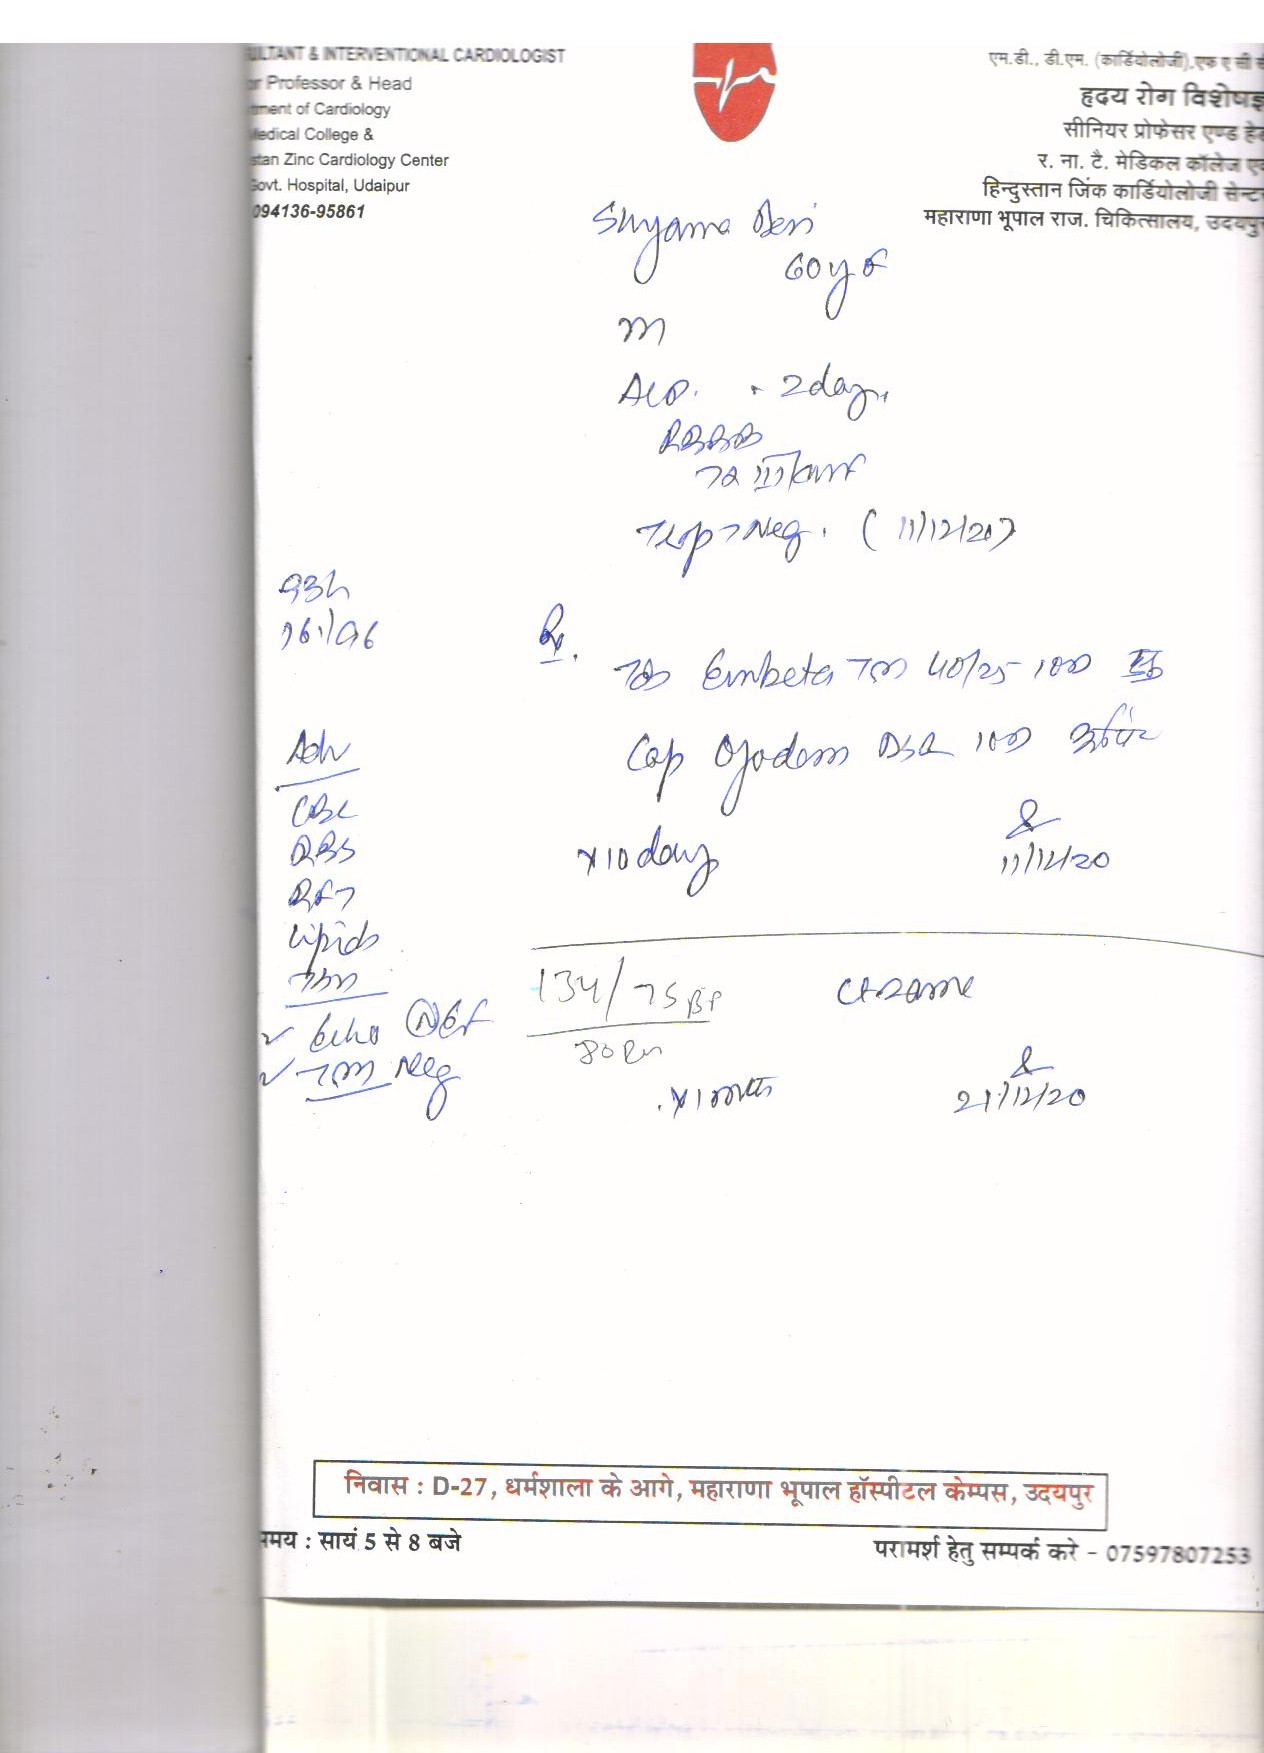 ULTANT & INTERVENTIONAL CARDIOLOGIST
or Professor & Head
tment of Cardiology
Medical College &
stan Zinc Cardiology Center
Govt. Hospital, Udaipur
094136-95861
एम.डी., डी.एम. (कार्डियोलोजी),एफ ए सी सी
हृदय रोग विशेषज्ञ
सीनियर प्रोफेसर एण्ड हेड
र. ना. टै. मेडिकल कॉलेज एव
हिन्दुस्तान जिंक कार्डियोलोजी सेन्टर
महाराणा भूपाल राज. चिकित्सालय, उदयपुर
Shyama Devi
60 y F
2 day.
RBBB
Trop Neg. (11/12/20)
93h
76/96
Rx.
Embeta TM 40/25 100
Cap Ojodom DSR 100
x10 day
11/12/20
Adv
CBC
RBS
RFT
Lipids
TMT
134/75 BP
80
CT Same
Echo N EF
TMT Neg
x 1 mth
21/12/20
निवास : D-27, धर्मशाला के आगे, महाराणा भूपाल हॉस्पीटल केम्पस, उदयपुर
समय : सायं 5 से 8 बजे
परामर्श हेतु सम्पर्क करे - 07597807253